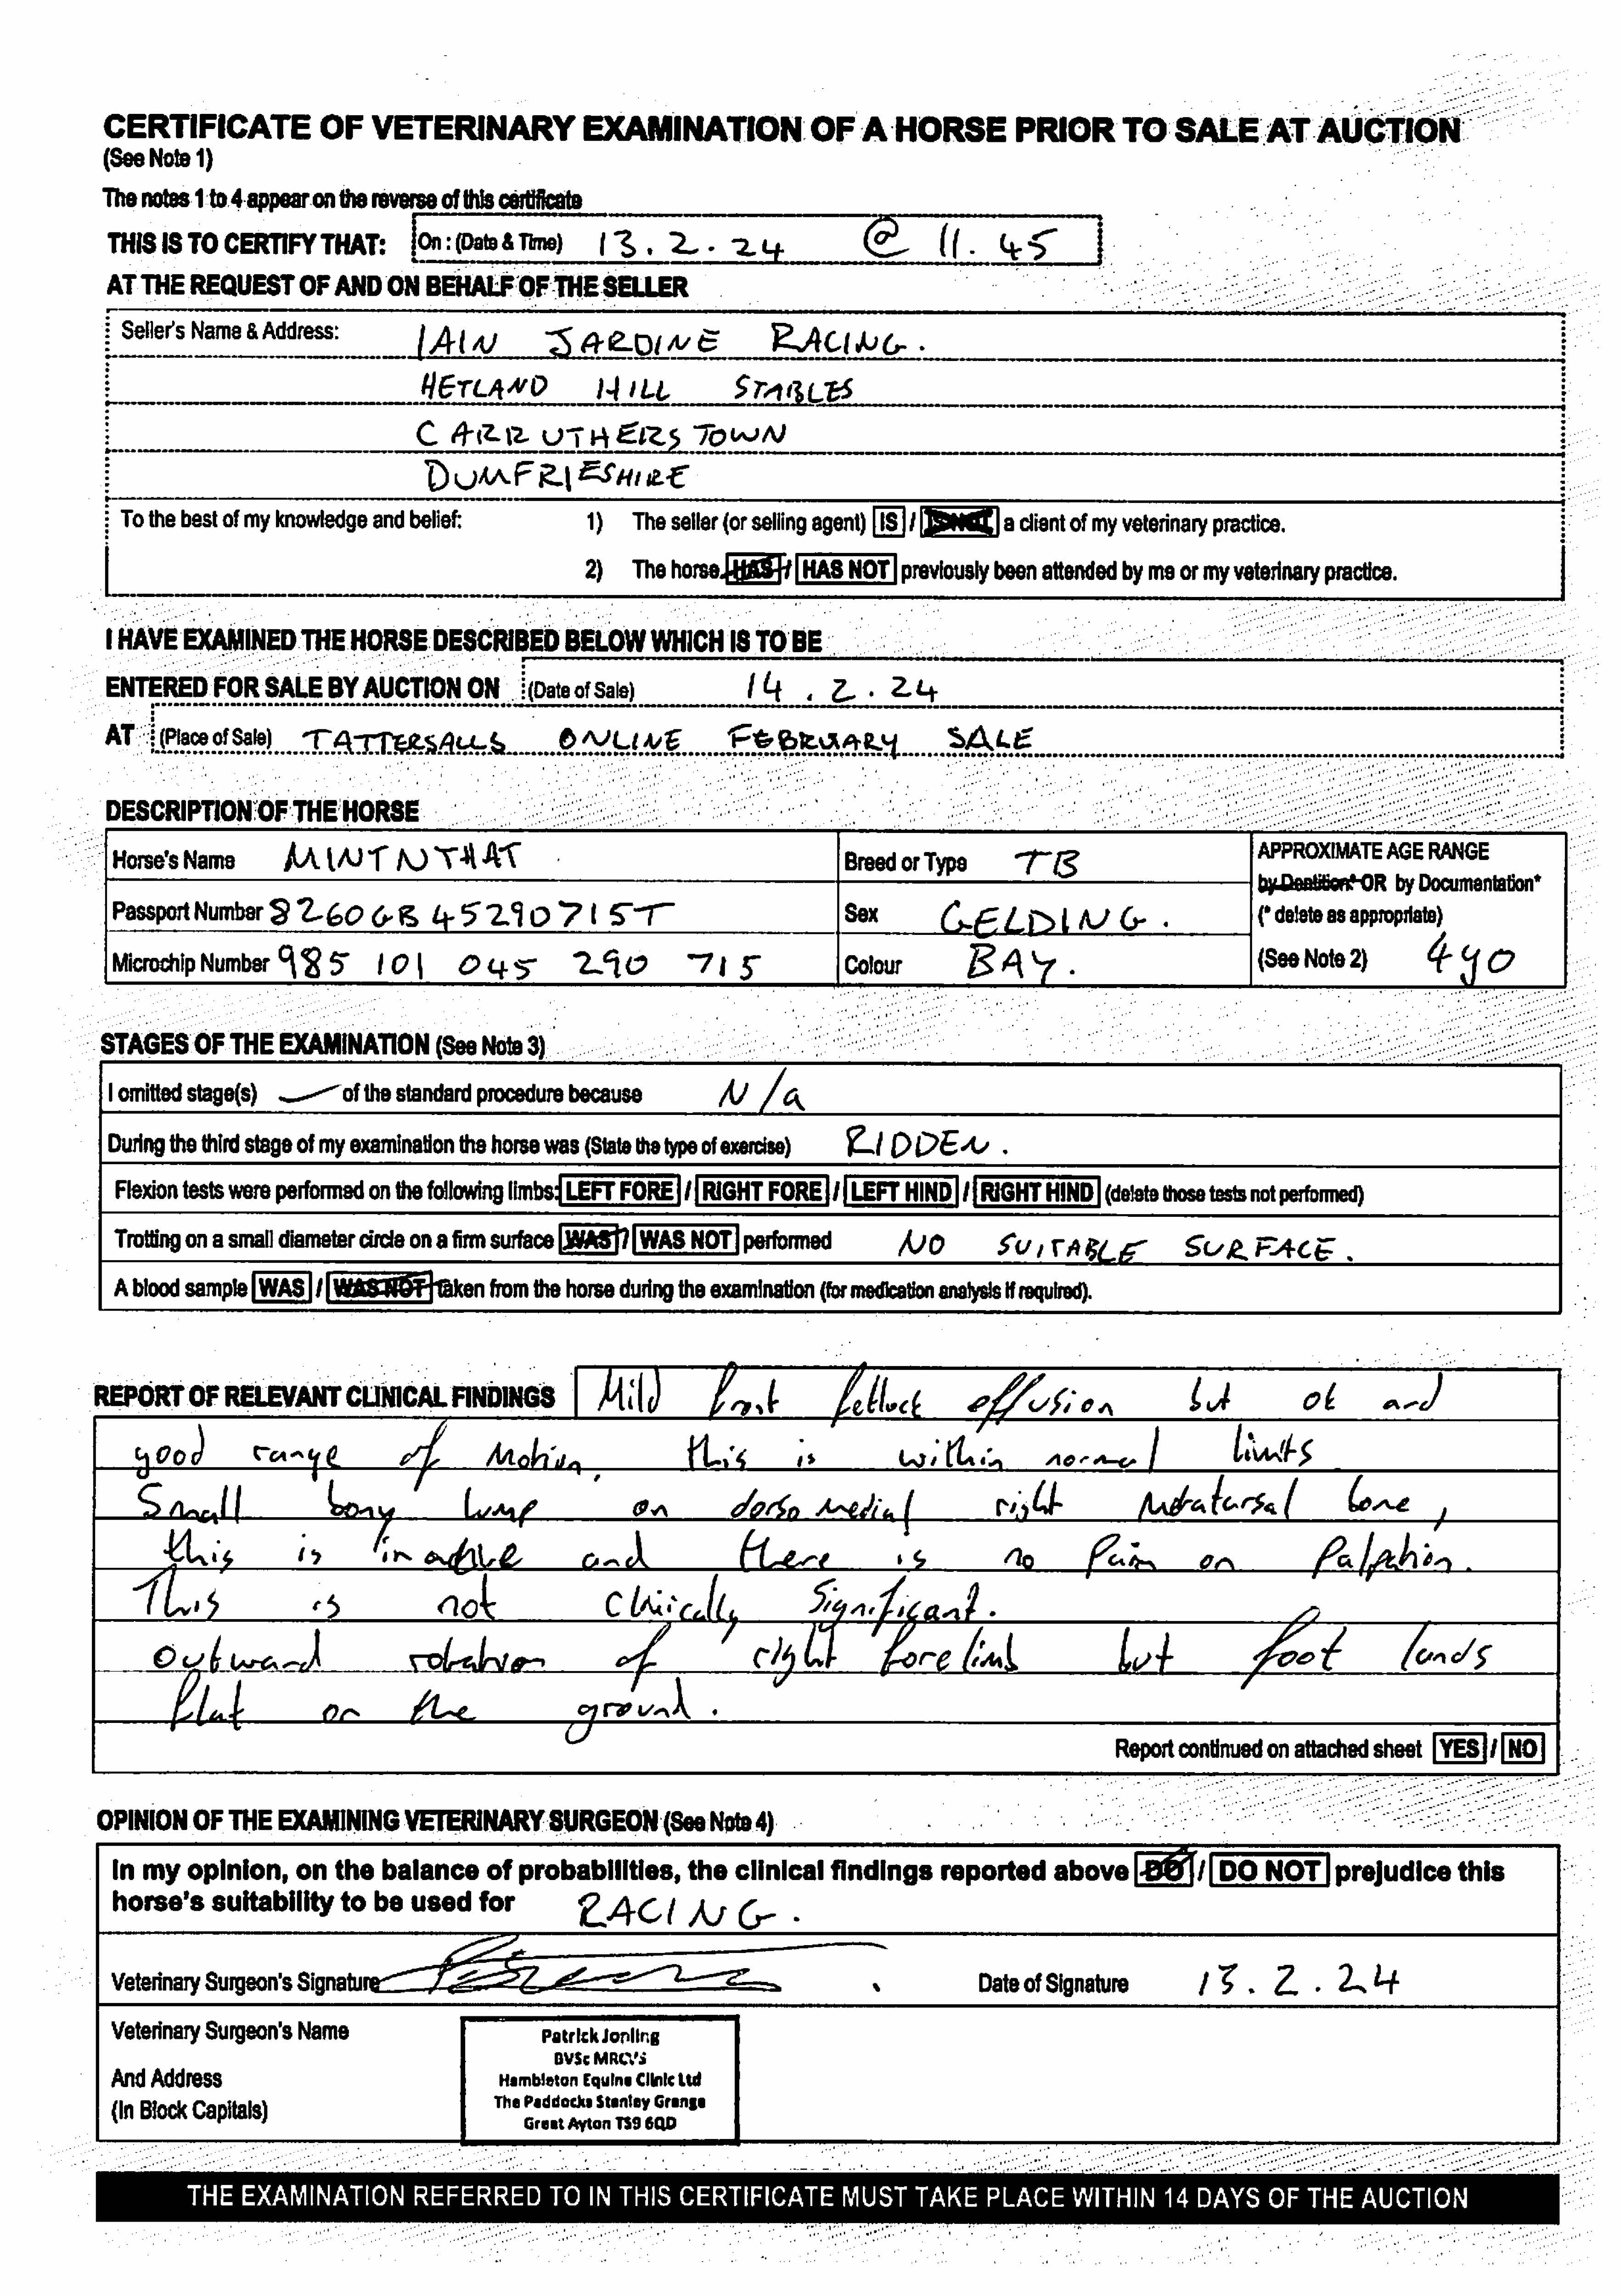 CERTIFICATE OF VETERINARY EXAMINATION OF A HORSE PRIOR TO SALE AT AUCTION
(See Note 1)
The notes 1 to 4 appear on the reverse of this certificate
THIS IS TO CERTIFY THAT: On : (Date & Time) 13.2.24 @ 11.45
AT THE REQUEST OF AND ON BEHALF OF THE SELLER
Seller's Name & Address: IAIN JARDINE RACING.
HETLAND HILL STABLES
CARRUTHERSTOWN
DUMFRIESHIRE
To the best of my knowledge and belief: 1) The seller (or selling agent) IS / IS NOT a client of my veterinary practice.
2) The horse HAS / HAS NOT previously been attended by me or my veterinary practice.
I HAVE EXAMINED THE HORSE DESCRIBED BELOW WHICH IS TO BE
ENTERED FOR SALE BY AUCTION ON (Date of Sale) 14.2.24
AT (Place of Sale) TATTERSALLS ONLINE FEBRUARY SALE
DESCRIPTION OF THE HORSE
Horse's Name MINTNTHAT Breed or Type TB APPROXIMATE AGE RANGE
by Dentition* OR by Documentation*
Passport Number 8260GB45290715T Sex GELDING. (* delete as appropriate)
Microchip Number 985 101 045 290 715 Colour BAY. (See Note 2) 4yo
STAGES OF THE EXAMINATION (See Note 3)
I omitted stage(s) — of the standard procedure because N/a
During the third stage of my examination the horse was (State the type of exercise) RIDDEN.
Flexion tests were performed on the following limbs: LEFT FORE / RIGHT FORE / LEFT HIND / RIGHT HIND (delete those tests not performed)
Trotting on a small diameter circle on a firm surface WAS / WAS NOT performed NO SUITABLE SURFACE.
A blood sample WAS / WAS NOT taken from the horse during the examination (for medication analysis if required).
REPORT OF RELEVANT CLINICAL FINDINGS Mild front fetlock effusion but ok and
good range of motion, this is within normal limits
Small bony lump on dorso medial right metatarsal bone,
this is inactive and there is no pain on palpation.
This is not clinically significant.
outward rotation of right forelimb but foot lands
flat on the ground.
Report continued on attached sheet YES / NO
OPINION OF THE EXAMINING VETERINARY SURGEON (See Note 4)
In my opinion, on the balance of probabilities, the clinical findings reported above DO / DO NOT prejudice this
horse's suitability to be used for RACING.
Veterinary Surgeon's Signature Date of Signature 13.2.24
Veterinary Surgeon's Name
And Address
(In Block Capitals)
Patrick Jonling
BVSc MRCVS
Hambleton Equine Clinic Ltd
The Paddocks Stanley Grange
Great Ayton TS9 6QD
THE EXAMINATION REFERRED TO IN THIS CERTIFICATE MUST TAKE PLACE WITHIN 14 DAYS OF THE AUCTION